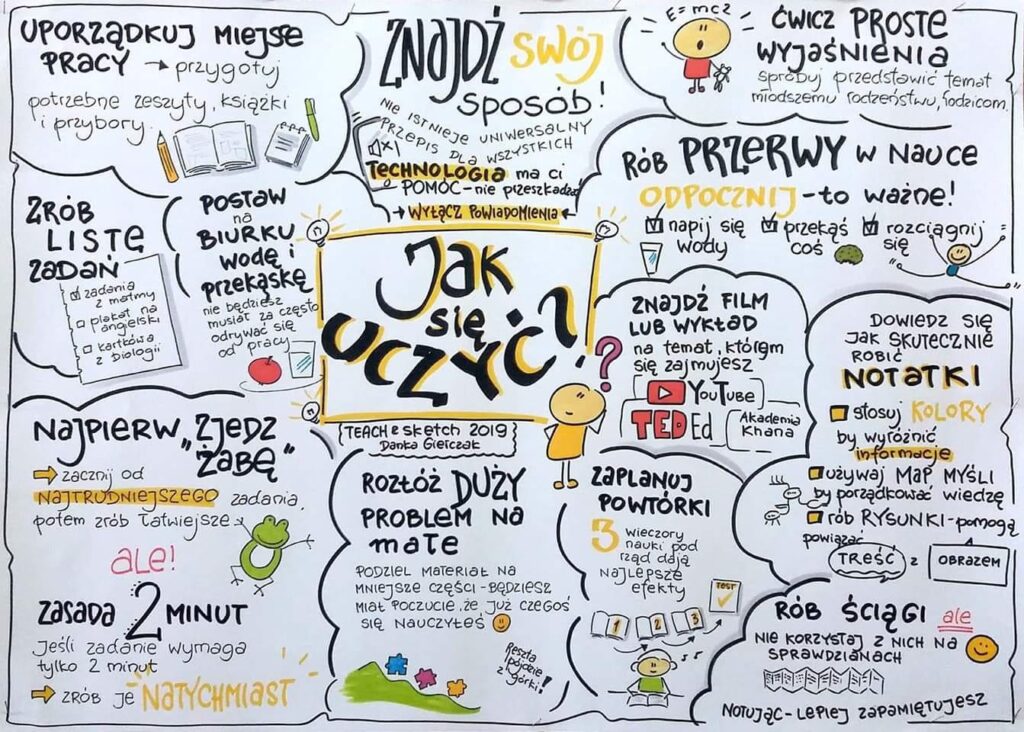 UPORZĄDKUJ MIEJSE
PRACY → przygotuj
potrzebne zeszyty, książki
i przybory.
ZNAJDŹ SWÓJ
SPOSÓB!
NIE ISTNIEJE UNIWERSALNY
PRZEPIS DLA WSZYSTKICH
TECHNOLOGIA ma ci
POMÓC - nie przeszkadzać
→ WYŁĄCZ POWIADOMIENIA ←
E=mc2
ĆWICZ PROSTE
WYJAŚNIENIA
spróbuj przedstawić temat
młodszemu rodzeństwu, rodzicom.
RÓB PRZERWY W NAUCE
ODPOCZNIJ - to ważne!
napij się
wody
przekąś
coś
rozciągnij
się
ZRÓB
LISTĘ
ZADAŃ
zadania
z matmy
plakat na
angielski
kartkówka
z biologii
POSTAW
na
BIURKU
wodę i
przekąskę
nie będziesz
musiał za często
odrywać się
od pracy
Jak
się
UCZYĆ?
TEACH & SKETCH 2019
Danka Gierczak
ZNAJDŹ FILM
LUB WYKŁAD
na temat, którym
się zajmujesz
YouTube
TED Ed
Akademia
Khana
DOWIEDZ SIĘ
JAK SKUTECZNIE
ROBIĆ
NOTATKI
stosuj KOLORY
by wyróżnić
informacje
używaj MAP MYŚLI
by porządkować wiedzę
rób RYSUNKI - pomogą
powiązać
TREŚĆ z OBRAZEM
NAJPIERW „ZJEDZ
ŻABĘ"
zacznij od
NAJTRUDNIEJSZEGO zadania,
potem zrób łatwiejsze
ale!
ZASADA 2 MINUT
Jeśli zadanie wymaga
tylko 2 minut
ZRÓB JE NATYCHMIAST
ROZŁÓŻ DUŻY
PROBLEM NA
małe
PODZIEL MATERIAŁ NA
MNIEJSZE CZĘŚCI - BĘDZIESZ
MIAŁ POCZUCIE, ŻE JUŻ CZEGOŚ
SIĘ NAUCZYŁEŚ
Reszta
pójdzie
z górki!
ZAPLANUJ
POWTÓRKI
3 wieczory
nauki pod
rząd dają
najlepsze
efekty
1 2 3
TEST
RÓB ŚCIĄGI ale
NIE KORZYSTAJ Z NICH NA
SPRAWDZIANACH
NOTUJĄC - LEPIEJ ZAPAMIĘTUJESZ